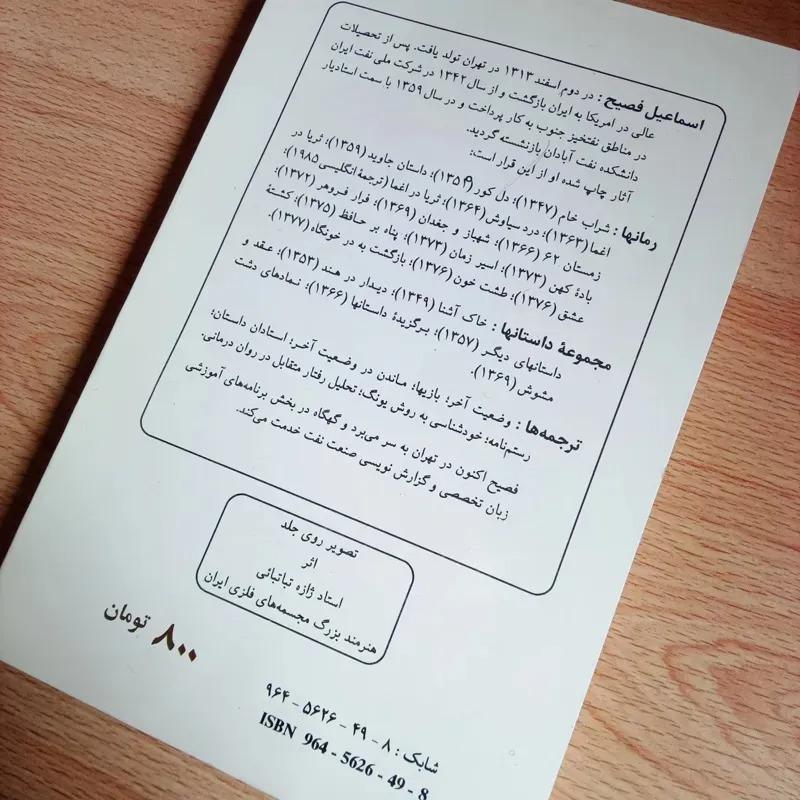 اسماعیل فصیح : در دوم اسفند ۱۳۱۳ در تهران تولد یافت. پس از تحصیلات
عالی در امریکا به ایران بازگشت و از سال ۱۳۴۲ در شرکت ملی نفت ایران
در مناطق نفتخیز جنوب به کار پرداخت و در سال ۱۳۵۹ با سمت استادیار
دانشکده نفت آبادان بازنشسته گردید.
آثار چاپ شده او از این قرار است:
رمانها : شراب خام (۱۳۴۷)؛ دل کور (۱۳۵۱)؛ داستان جاوید (۱۳۵۹)؛ ثریا در
اغما (۱۳۶۳)؛ درد سیاوش (۱۳۶۴)؛ ثریا در اغما (ترجمهٔ انگلیسی ۱۹۸۵)؛
زمستان ۶۲ (۱۳۶۶)؛ شهباز و جغدان (۱۳۶۹)؛ فرار فروهر (۱۳۷۲)؛
بادهٔ کهن (۱۳۷۳)؛ اسیر زمان (۱۳۷۳)؛ پناه بر حافظ (۱۳۷۵)؛ کشتهٔ
عشق (۱۳۷۶)؛ طشت خون (۱۳۷۶)؛ بازگشت به درخونگاه (۱۳۷۷).
مجموعهٔ داستانها : خاک آشنا (۱۳۴۹)؛ دیدار در هند (۱۳۵۳)؛ عقد و
داستانهای دیگر (۱۳۵۷)؛ برگزیدهٔ داستانها (۱۳۶۶)؛ نمادهای دشت
مشوش (۱۳۶۹).
ترجمه‌ها : وضعیت آخر؛ بازیها؛ ماندن در وضعیت آخر؛ استادان داستان؛
رستم‌نامه؛ خودشناسی به روش یونگ؛ تحلیل رفتار متقابل در روان درمانی.
فصیح اکنون در تهران به سر می‌برد و گهگاه در بخش برنامه‌های آموزشی
زبان تخصصی و گزارش نویسی صنعت نفت خدمت می‌کند.
تصویر روی جلد
اثر
استاد ژازه تباتبائی
هنرمند بزرگ مجسمه‌های فلزی ایران
۸۰۰ تومان
شابک : ۸ - ۴۹ - ۵۶۲۶ - ۹۶۴
ISBN 964 - 5626 - 49 - 8